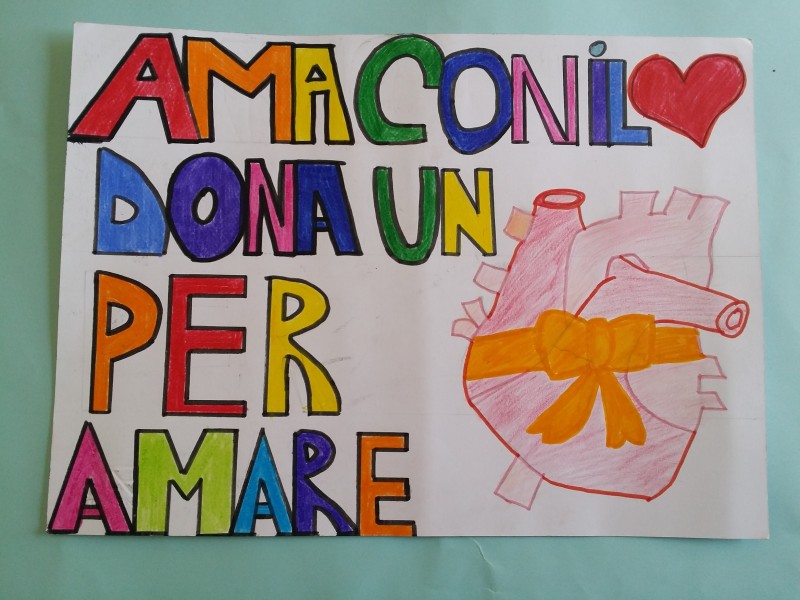 AMA CON IL
DONA UN
PER
AMARE